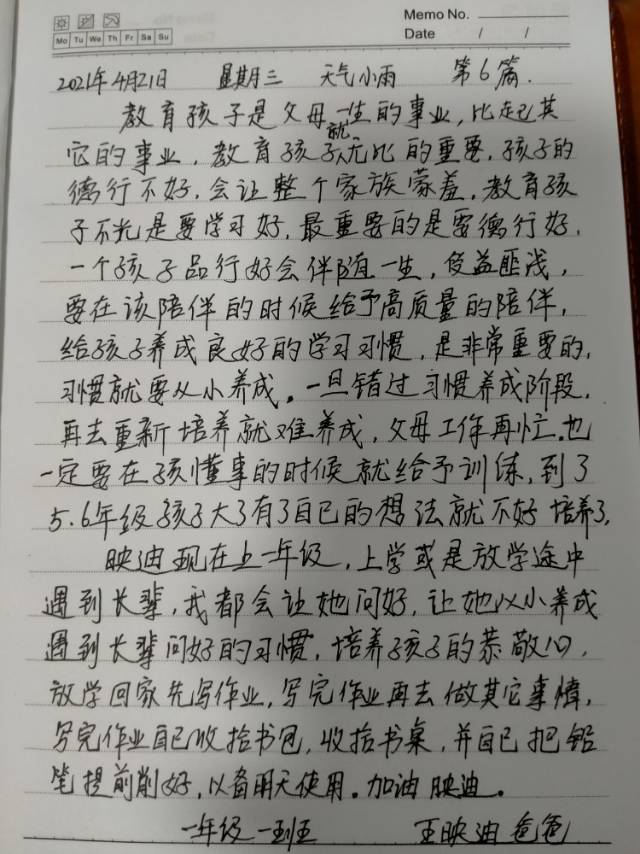 Memo No.
Mo Tu We Th Fr Sa Su
Date / /
2021年4月21日 星期三 天气小雨 第6篇.
教育孩子是父母一生的事业,比起其
它的事业,教育孩子就无比的重要,孩子的
德行不好,会让整个家族蒙羞,教育孩
子不光是要学习好,最重要的是要德行好,
一个孩子品行好会伴随一生,受益匪浅,
要在该陪伴的时候给予高质量的陪伴,
给孩子养成良好的学习习惯,是非常重要的,
习惯就要从小养成。一旦错过习惯养成阶段,
再去重新培养就难养成,父母工作再忙.也
一定要在孩懂事的时候就给予训练,到了
5.6年级孩子大了有了自己的想法就不好培养了,
映迪现在上一年级,上学或是放学途中
遇到长辈,我都会让她问好,让她从小养成
遇到长辈问好的习惯,培养孩子的恭敬心,
放学回家先写作业,写完作业再去做其它事情,
写完作业自己收拾书包,收拾书桌,并自己把铅
笔提前削好,以备明天使用。加油映迪。
一年级一班 王映迪爸爸